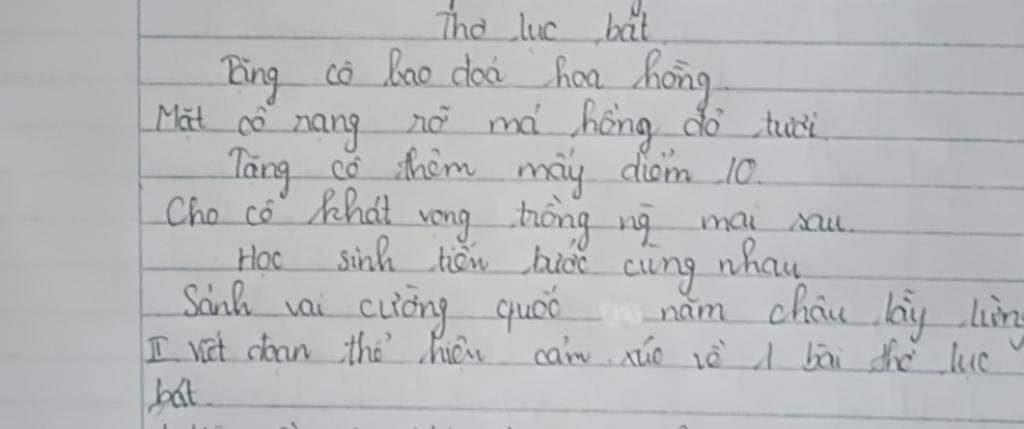 Thơ lục bát
Tặng cô bao đoá hoa hồng
Mặt cô rạng rỡ má hồng đỏ tươi
Tặng cô thêm mấy điểm 10.
Cho cô khát vọng trồng ng mai sau.
Học sinh tiến bước cùng nhau
Sánh vai cường quốc năm châu lẫy lừng
II Viết đoạn thể hiện cảm xúc về 1 bài thơ lục
bát.